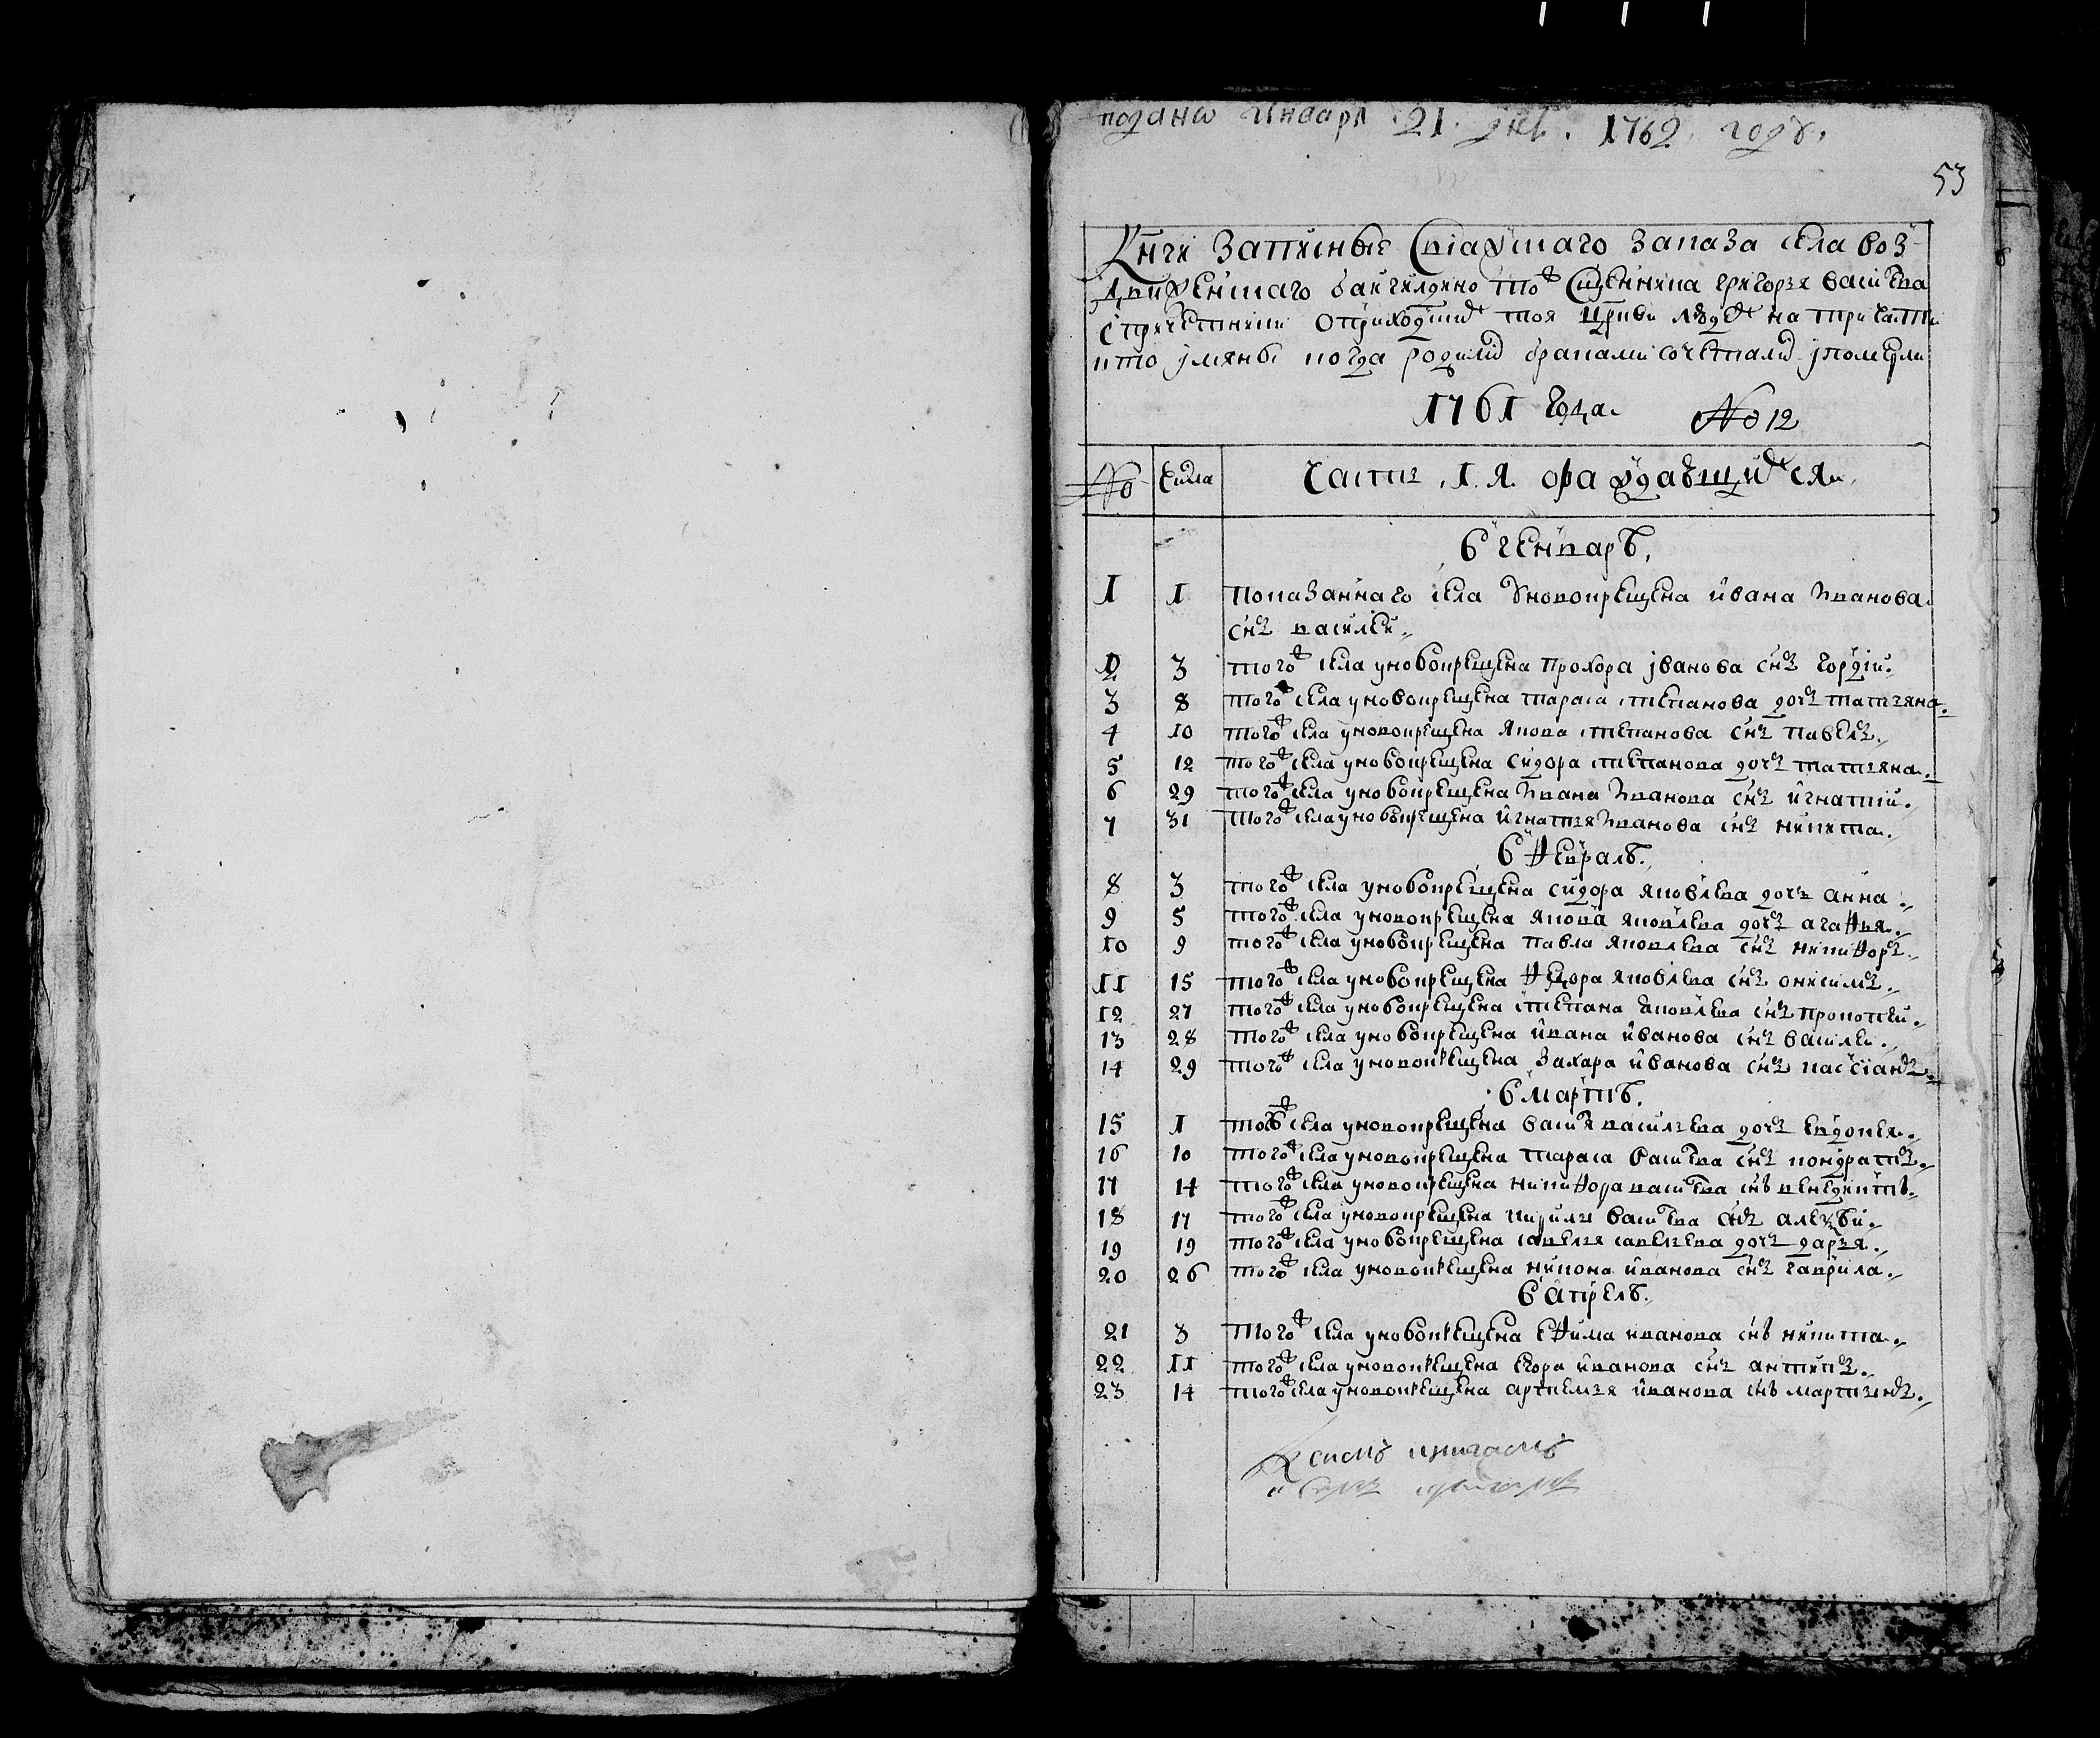 подано генваря 21 дня 1762 году.
53
Книги записные Свіяжскаго заказа села Воз-
движенскаго Байгилдино тожъ Сщенника Григорья Василева
с причетники о приходскихъ тоя цркви людехъ на три части
кто имяны когда родилис браками сочетались и померли
1761 года. № 12
№ Числа Часть 1 я о раждавшихся.
В Генварѣ.
1 1 Показаннаго села у новокрещена Ивана Иванова
снъ Василей.
2 3 Того ж села у новокрещена Прохора Іванова снъ Гордій.
3 8 Того ж села у новокрещена Тараса Степанова дочь Татьяна.
4 10 Того ж села у новокрещена Якова Степанова снъ Павелъ.
5 12 Того ж села у новокрещена Сидора Степанова дочь Татьяна.
6 29 Того ж села у новокрещена Ивана Иванова снъ Игнатий.
7 31 Того ж села у новокрещена Игнатья Иванова снъ Никита.
В Феврале.
8 3 Того ж села у новокрещена Сидора Яковлева дочь Анна.
9 5 Того ж села у новокрещена Якова Яковлева дочь Агафья.
10 9 Того ж села у новокрещена Павла Яковлева снъ Никифоръ.
11 15 Того ж села у новокрещена Федора Яковлева снъ Онисимъ.
12 27 Того ж села у новокрещена Степана Яковлева снъ Прокопей.
13 28 Того ж села у новокрещена Ивана Иванова снъ Василей.
14 29 Того ж села у новокрещена Захара Иванова снъ Кассіанъ.
В Мартѣ.
15 1 Того ж села у новокрещена Василья Васильева дочь Евдокея.
16 10 Того ж села у новокрещена Тараса Василева снъ Кондратъ.
17 14 Того ж села у новокрещена Никифора Василева снъ Венедиктъ.
18 17 Того ж села у новокрещена Кирилы Василева снъ Алексѣй.
19 19 Того ж села у новокрещена Савелья Савельева дочь Дарья.
20 26 Того ж села у новокрещена Никона Иванова снъ Гаврила.
В Апрелѣ.
21 3 Того ж села у новокрещена Ефима Иванова снъ Никита.
22 11 Того ж села у новокрещена Егора Иванова снъ Антипъ.
23 14 Того ж села у новокрещена Артемья Иванова снъ Мартынъ.